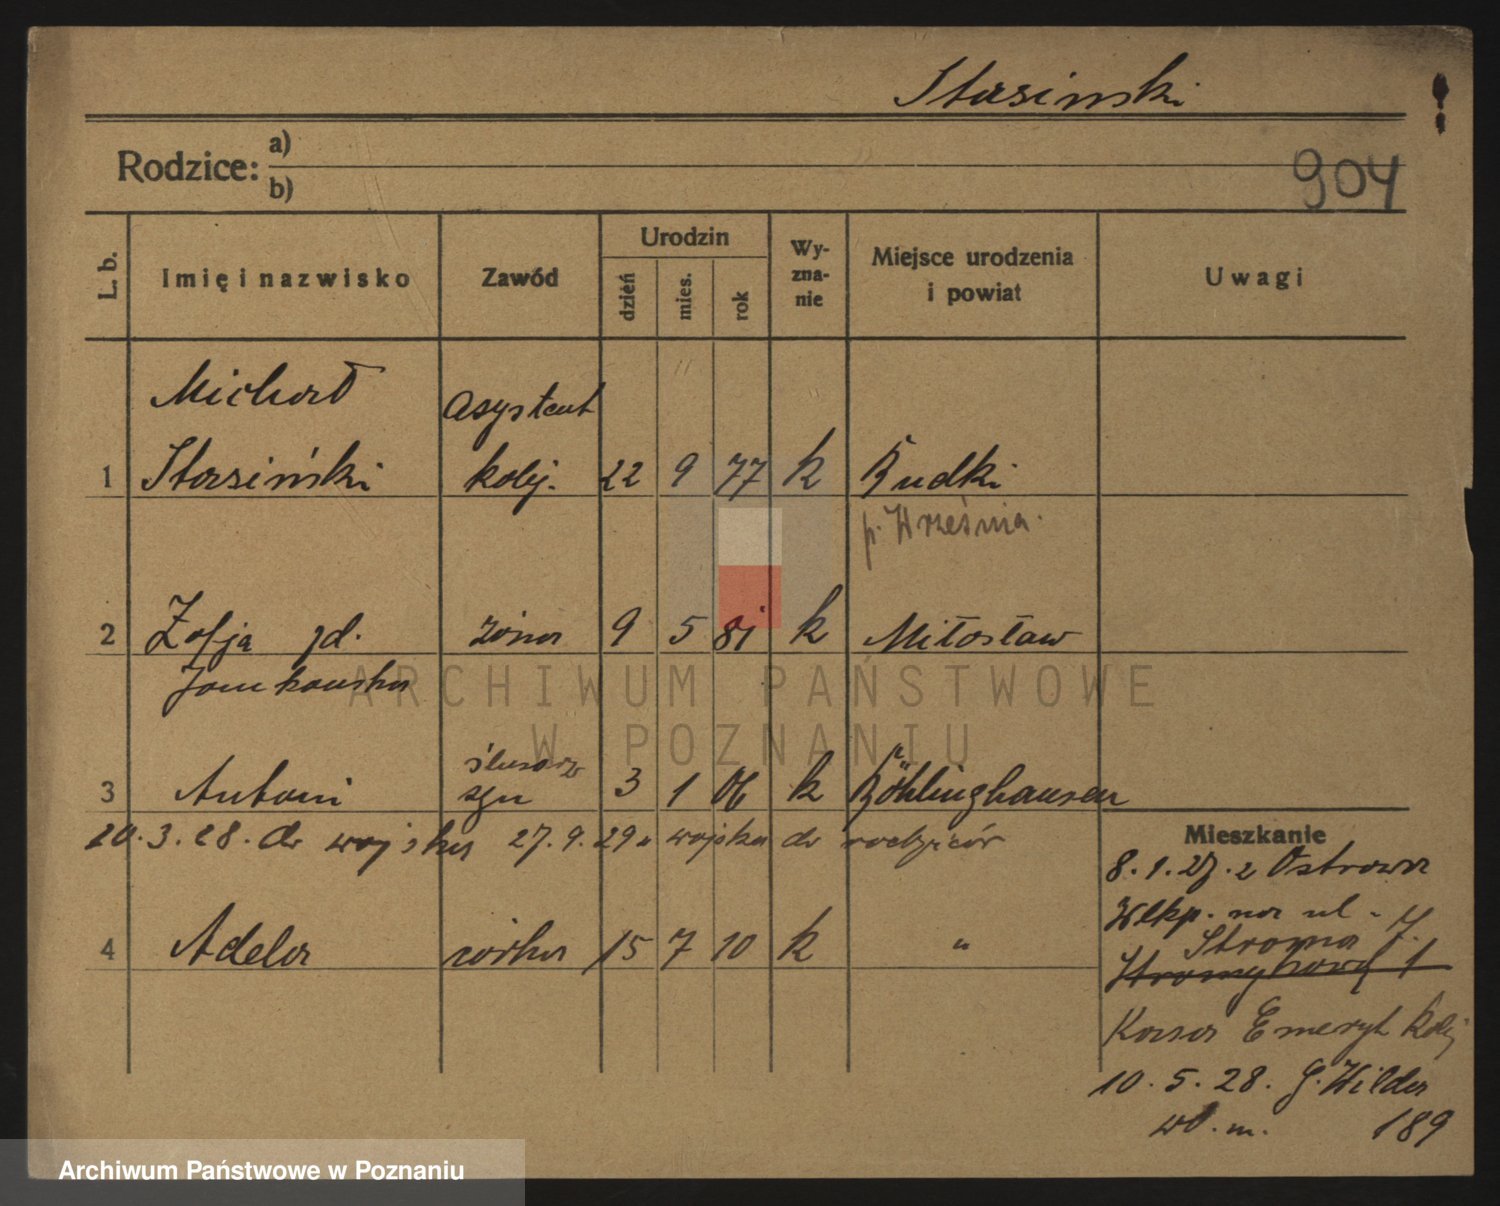 Stasinski
Rodzice: a)
b)
904
L. b.
Imię i nazwisko
Zawód
Urodzin
dzień
mies.
rok
Wy-
zna-
nie
Miejsce urodzenia
i powiat
Uwagi
Michał
asystent
1 Stasiński kolej. 22 9 77 k Rudki
p. Września.
2 Zofja zd. żona 9 5 81 k Miłosław
Jankowska
ślusarz
3 Antoni syn 3 1 06 k Röhlinghausen
20. 3. 28. do wojska 27. 9. 29 z wojska do rodziców
4 Adela córka 15 7 10 k "
Mieszkanie
8. 1. 27. z Ostrowa
Wlkp. na ul.
Stroma 7.
1
Kasa Emeryt kolej
10. 5. 28. G. Wilda
wł. m. 189
ARCHIWUM PAŃSTWOWE
W POZNANIU
Archiwum Państwowe w Poznaniu